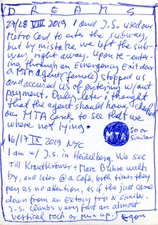 DREAMS
27/28 VIII 2019 I and J.S. used our
Metro Card to enter the subway,
but by mistake we left the sub-
way right away. Upon re-ente-
ring through an Emergency Exit door
a MTA agent (female) stopped us
and accused us of entering without
payment. Only later I thought
that the agent should have asked
our MTA cards to see that we
where not lying.
MTA
so or
similar
16/17 IX 2019 NYC
I am w/ J.S. in Heidelberg. We see
Till Krautkrämer + Marc Brühn walk
by, and later @ a Café, both times they
pay us no attention, as if they just came
down from an extasy trip or similar.
J.S. climbs very fast an almost
vertical rock by runnin up.